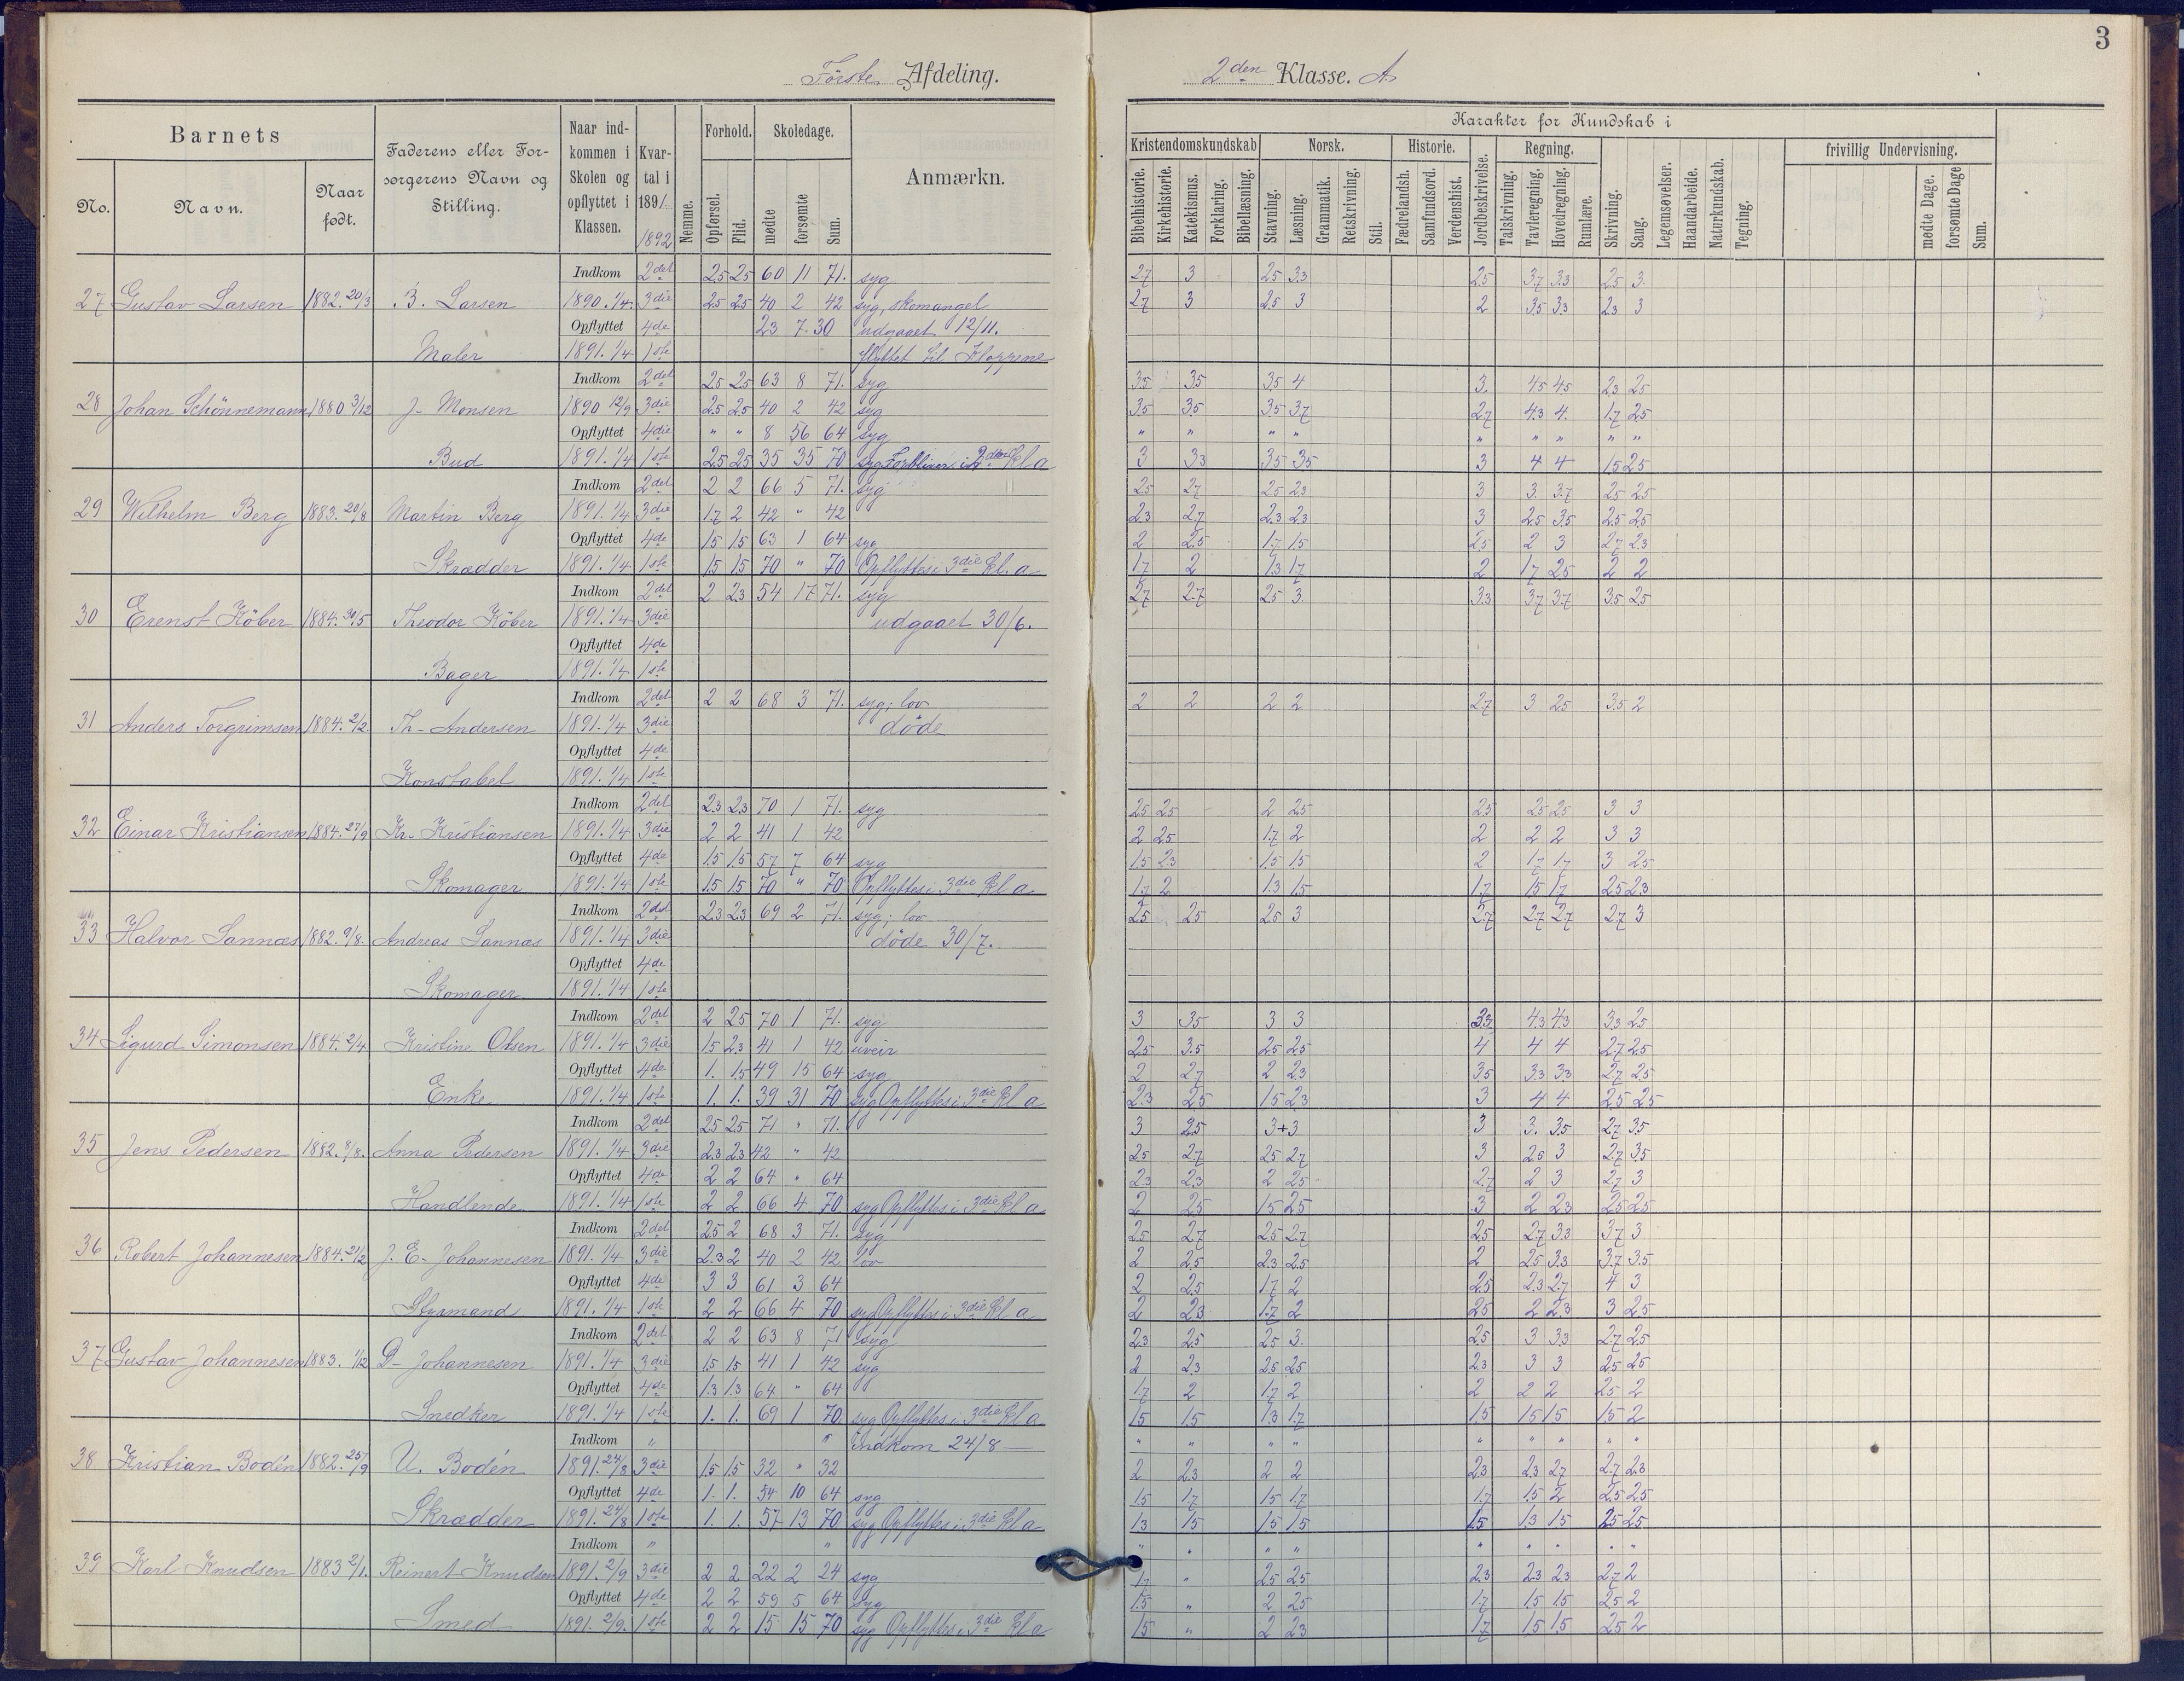 3
Første Afdeling.
2den Klasse. A
Barnets
No.
Navn.
Naar født.
Faderens eller Forsørgerens Navn og Stilling.
Naar indkommen i Skolen og opflyttet i Klassen.
Kvartal i 1891
1892
Nemme.
Forhold.
Opførsel.
Flid.
Skoledage.
mødte
forsømte
Sum.
Anmærkn.
Karakter for Kundskab i
Kristendomskundskab
Bibelhistorie.
Kirkehistorie.
Katekismus.
Forklaring.
Bibellæsning.
Norsk.
Stavning.
Læsning.
Grammatik.
Retskrivning.
Stil.
Historie.
Fædrelandsh.
Samfundsord.
Verdenshist.
Jordbeskrivelse.
Regning.
Talskrivning.
Tavleregning.
Hovedregning.
Rumlære.
Skrivning.
Sang.
Legemsøvelser.
Haandarbeide.
Naturkundskab.
Tegning.
frivillig Undervisning.
mødte Dage.
forsømte Dage
Sum.
Indkom 2det 25 25 60 11 71. syg 27 3 25 33 25 37 33 25 3
27 Gustav Larsen 1882. 20/3 B. Larsen 1890. 1/4. 3die 25 25 40 2 42 syg, skomangel 27 3 25 3 2 35 33 23 3
Opflyttet 4de 23 7 30 udgaaet 12/11.
Maler 1891. 1/4 1ste flyttet til
Indkom 2det 25 25 63 8 71. syg 35 35 35 4 3. 45 45 23 25
28 Johan Schönnemann 1880 3/12 J. Monsen 1890 12/9 3die 25 25 40 2 42 syg 35 35 35 37 27 43 4. 17 25
Opflyttet 4de " " 8 56 64 syg " " " " " " " " "
Bud 1891. 1/4 1ste 25 25 35 35 70 syg Forbliver i 2den Kl a 3 33 35 35 3 4 4 15 25
Indkom 2det 2 2 66 5 71. syg 25 27 25 23 3 3. 37 25 25
29 Wilhelm Berg 1883. 20/8 Martin Berg 1891. 1/4 3die 17 2 42 " 42 23 27 23 23 3 25 35 25 25
Opflyttet 4de 15 15 63 1 64 syg 2 25 17 15 25 2 3 27 23
Skrædder 1891. 1/4 1ste 15 15 70 " 70 Opflyttes i 3die Kl. a 17 2 13 17 2 17 25 2 2
Indkom 2det 2 23 54 17 71. syg 27 27 25 3. 33 37 37 35 25
30 Erenst Köber 1884. 30/5 Theodor Köber 1891. 1/4 3die udgaaet 30/6.
Opflyttet 4de
Bager 1891. 1/4 1ste
Indkom 2det 2 2 68 3 71. syg; lov 2 2 2 2 27 3 25 35 2
31 Anders Torgrimsen 1884. 2/2 Th. Andersen 1891. 1/4 3die döde
Opflyttet 4de
Konstabel 1891. 1/4 1ste
Indkom 2det 23 23 70 1 71. syg 25 25 2 25 25 25 25 3 3
32 Einar Kristiansen 1884. 27/9 Kr. Kristiansen 1891. 1/4 3die 2 2 41 1 42 2 25 17 2 2 2 2 3 3
Opflyttet 4de 15 15 57 7 64 syg 15 23 15 15 2 17 17 3 25
Skomager 1891. 1/4 1ste 15 15 70 " 70 Opflyttes i 3die Kl a 17 2 13 15 17 15 17 25 23
Indkom 2det 23 23 69 2 71. syg; lov 25 25 25 3 27 27 27 27 3
33 Halvor Sannæs 1882. 9/8. Andreas Sannæs 1891. 1/4 3die döde 30/7.
Opflyttet 4de
Skomager 1891. 1/4 1ste
Indkom 2det 2 25 70 1 71. syg 3 35 3 3 33 43 43 33 25
34 Sigurd Simonsen 1884. 2/4 Kristine Olsen 1891. 1/4 3die 15 23 41 1 42 uveir 25 35 25 25 4 4 4 27 25
Opflyttet 4de 1. 15 49 15 64 syg 2 27 2 23 35 33 33 27 25
Enke 1891. 1/4 1ste 1. 1. 39 31 70 syg Opflyttes i 3die Kl a 23 25 15 23 3 4 4 25 25
Indkom 2det 25 25 71 " 71. 3 25 3+3 3 3. 35 27 35
35 Jens Pedersen 1882. 8/8. Anna Pedersen 1891. 1/4 3die 23 23 42 " 42 25 27 25 27 3 25 3 27 35
Opflyttet 4de 2 2 64 " 64 23 23 2 25 27 2 3 27 3
Handlende 1891. 1/4 1ste 2 2 66 4 70 syg Opflyttes i 3die Kl a 2 25 15 25 3 2 23 25 25
Indkom 2det 25 2 68 3 71. syg 25 27 25 27 25 27 33 37 3
36 Robert Johannesen 1884. 21/2 J. E. Johannesen 1891. 1/4 3die 23 2 40 2 42 lov 2 25 23 25 2 25 33 37 35
Opflyttet 4de 3 3 61 3 64 2 25 17 2 25 23 27 4 3
Styrmand 1891. 1/4 1ste 2 2 66 4 70 syg Opflyttes i 3die Kl a 2 23 17 2 25 2 23 3 25
Indkom 2det 2 2 63 8 71 syg 23 25 25 3. 25 3 33 27 25
37 Gustav Johannesen 1883. 1/12 D- Johannesen 1891. 1/4 3die 15 15 41 1 42 syg 2 23 25 25 23 3 3 25 25
Opflyttet 4de 13 13 64 " 64 17 2 17 2 2 2 2 25 2
Snedker 1891. 1/4 1ste 1. 1. 69 1 70 syg Opflyttes i 3die Kl a 15 15 13 17 15 15 15 15 2
Indkom " " Indkom 24/8 " " " " " " " " "
38 Kristian Bodén 1882. 25/9 U. Bodén 1891. 24/8 3die 15 15 32 " 32 2 23 2 2 23 23 27 27 23
Opflyttet 4de 1. 1. 54 10 64 syg 15 17 15 17 17 15 2 25 25
Skrædder 1891. 24/8 1ste 1. 1. 57 13 70 syg Opflyttes i 3die Kl a 13 15 15 15 15 13 15 25 25
Indkom " " " " " " " " " " "
39 Karl Knudsen 1883 2/1. Reinert Knudsen 1891. 2/9 3die 2 2 22 2 24 syg 17 " 25 25 23 23 23 27 2
Opflyttet 4de 2 2 59 5 64 syg 15 " 2 25 17 15 15 25 2
Smed 1891. 2/9. 1ste 2 2 15 15 70 syg Opflyttes i 3die Kl a 15 " 2 23 17 15 15 25 2